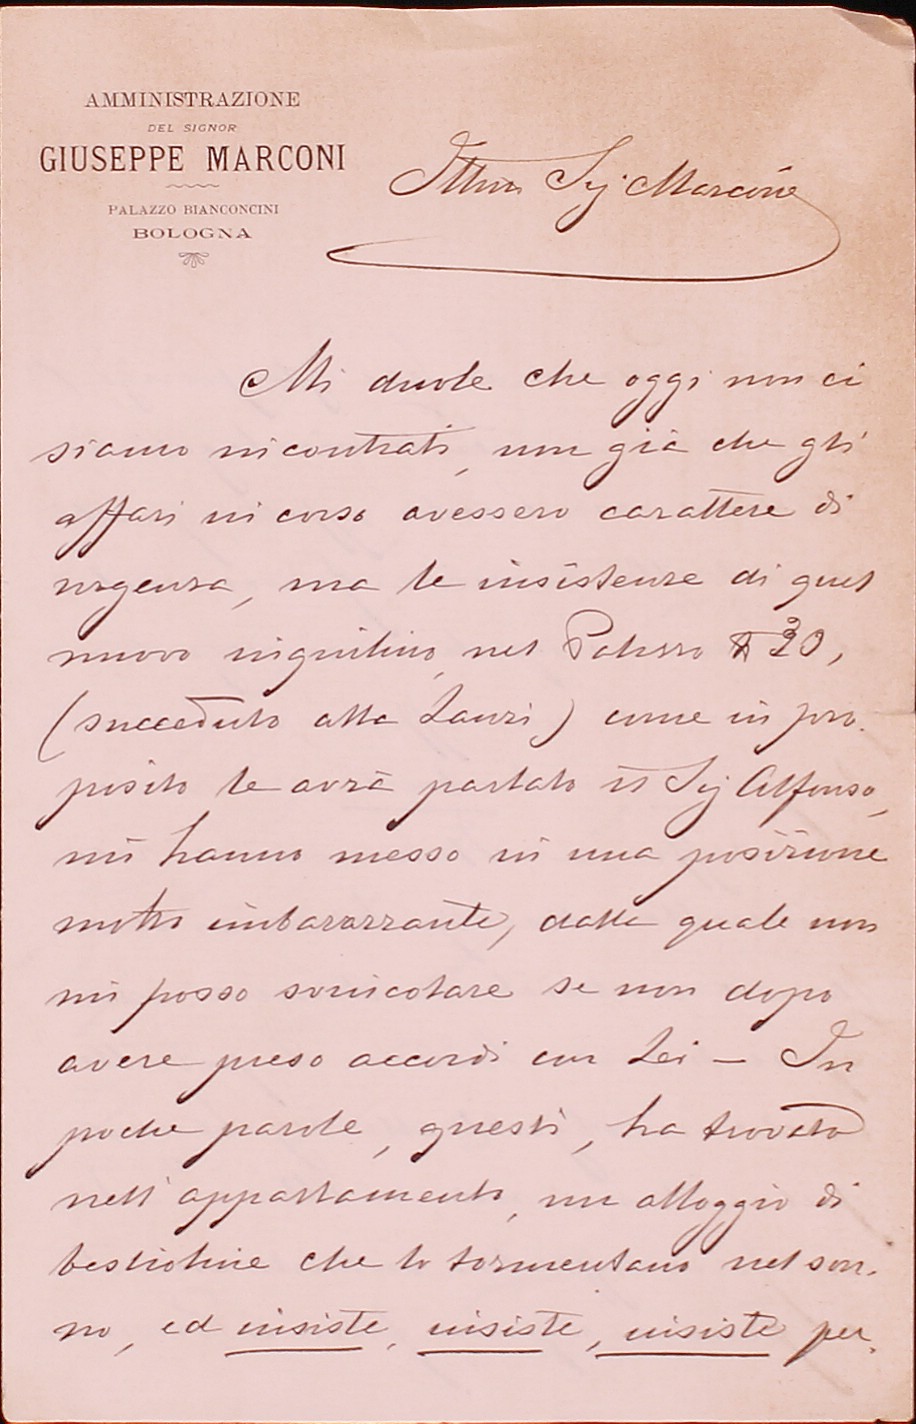 AMMINISTRAZIONE
DEL SIGNOR
GIUSEPPE MARCONI
PALAZZO BIANCONCINI
BOLOGNA
Illmo Sig Marconi
Mi duole che oggi non ci
siamo incontrati, non già che gli
affari in corso avessero carattere di
urgenza, ma le insistenze di quel
nuovo inquilino, nel Palazzo 30,
(succeduto alla Lauri) come in pro-
posito le avrà parlato il Sig Alfonso,
mi hanno messo in una posizione
molto imbarazzante, dalla quale non
mi posso svincolare se non dopo
avere preso accordi con Lei – In
poche parole, questi, ha trovato
nell'appartamento, un alloggio di
bestioline che lo tormentano nel son-
no, ed insiste, insiste, insiste per